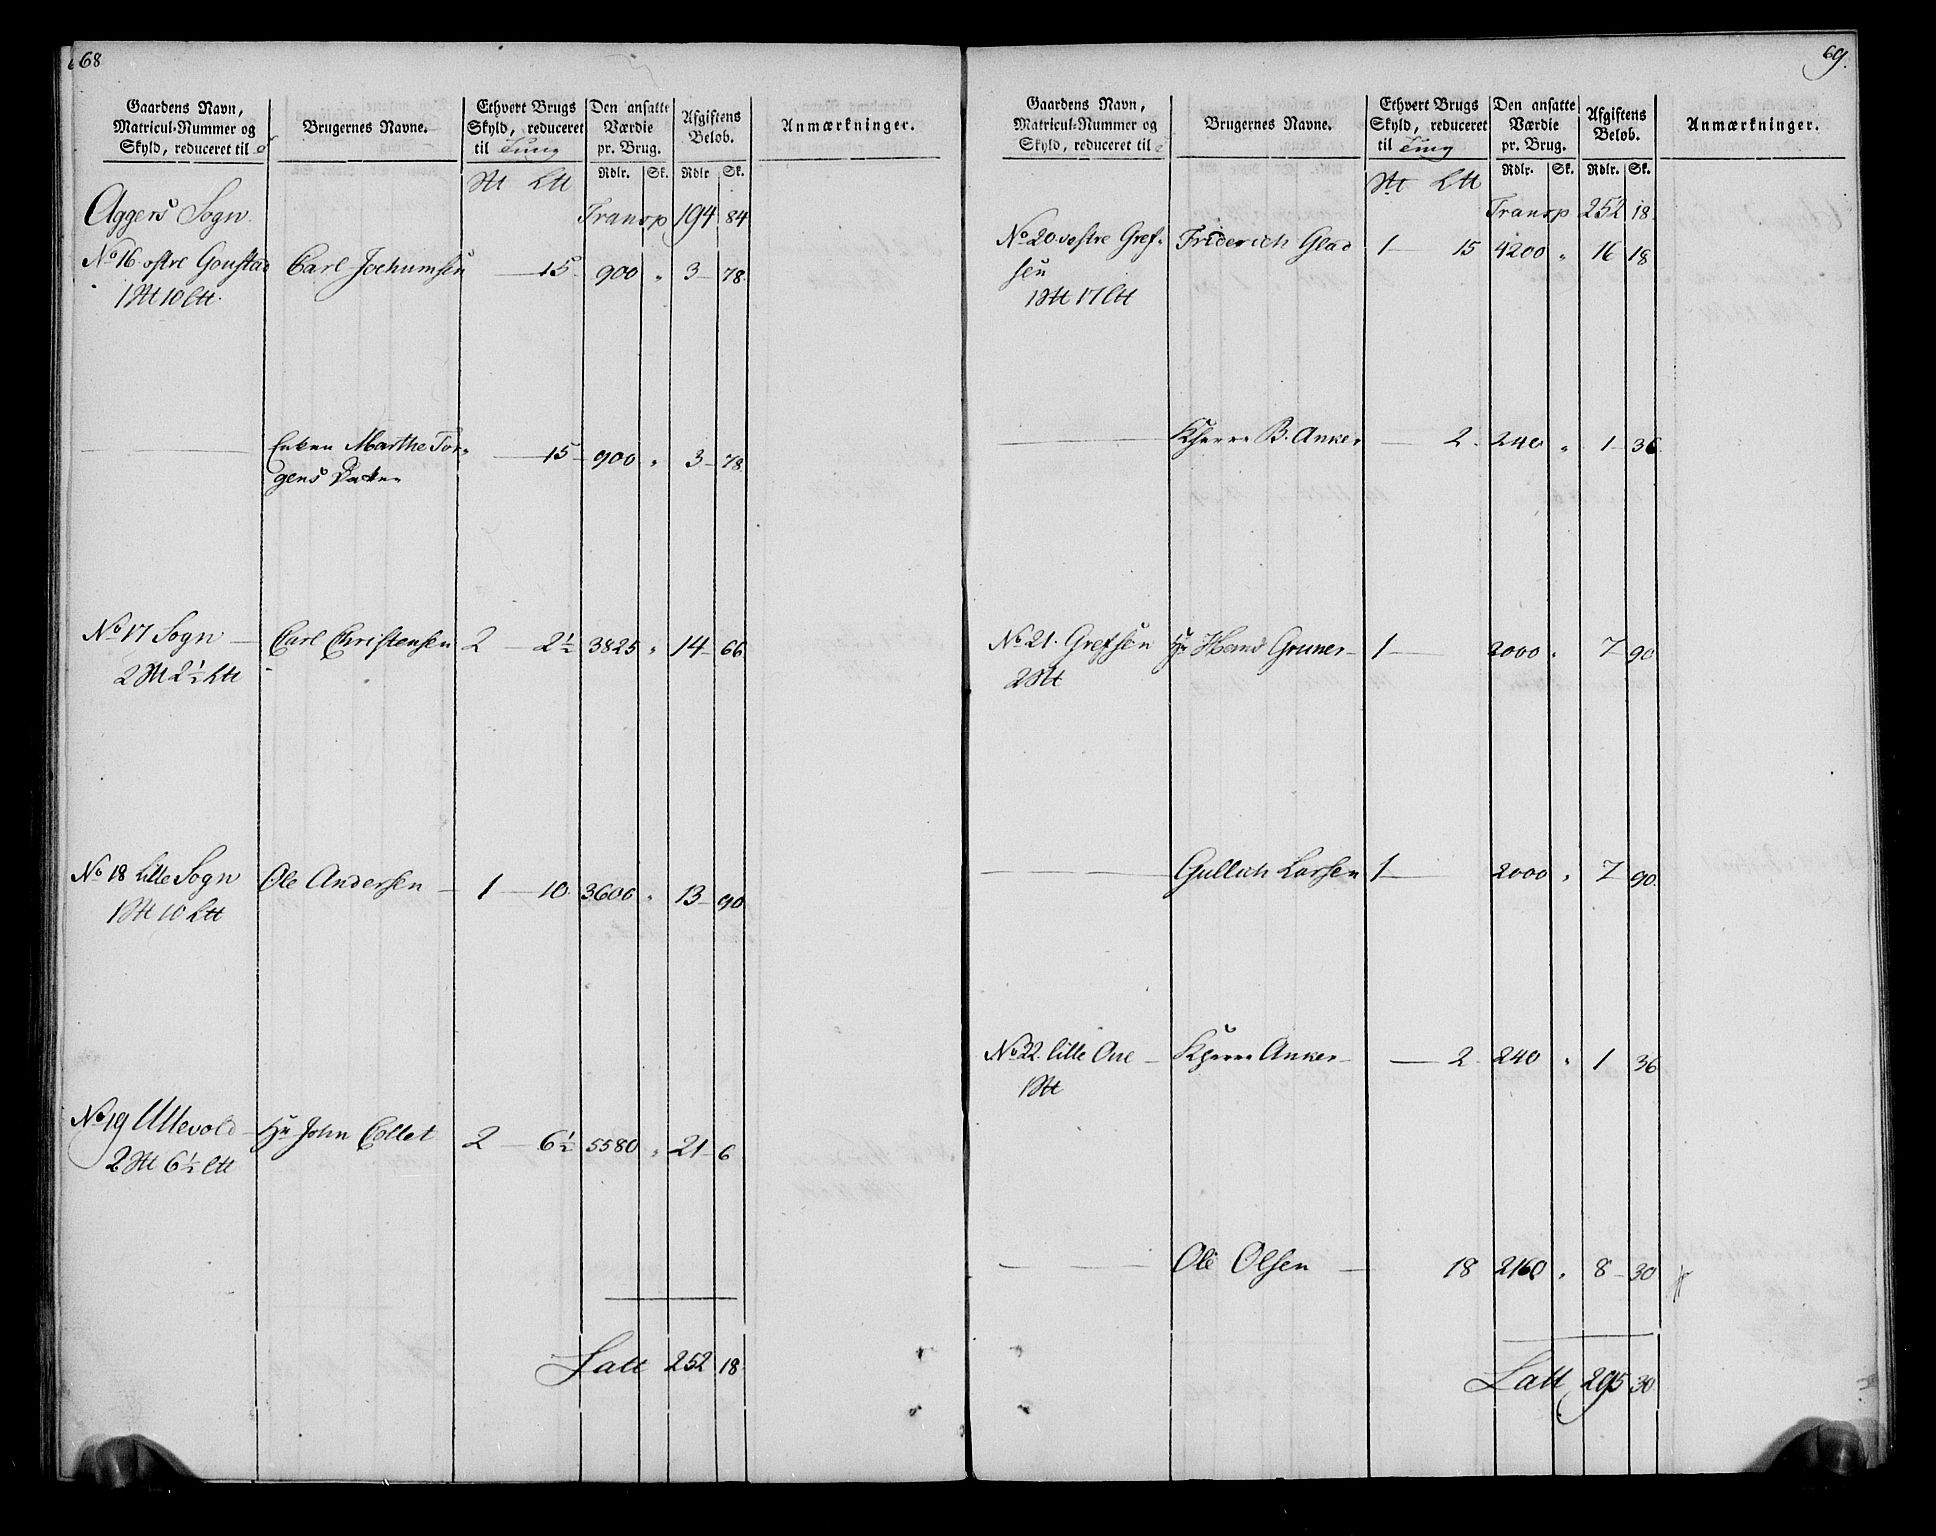 68
Gaardens Navn, Matricul-Nummer og Skyld, reduceret til
Brugernes Navne.
Ethvert Brugs Skyld, reduceret til Tung
Den ansatte Værdie pr. Brug.
Afgiftens Beløb.
Anmærkninger.
Rdlr. Sk. Rdlr Sk.
Aggers Sogn
Transp 194 84
No 16 østre Goustad Carl Jochumsen 15 900 " 3 78
1 10
Enken Marthe Tor-
gens 15 900 " 3 78
No 17 Sogn Carl Christensen 2 2½ 3825 " 14 66
2 2½
No 18 Lille Sogn Ole Andersen 1 10 3600 " 13 90
1 10
No 19 Ullevold Hr John Collet 2 6½ 5580 " 21 6
2 6½
Latt 252 18
69.
Gaardens Navn, Matricul-Nummer og Skyld, reduceret til
Brugernes Navne.
Ethvert Brugs Skyld, reduceret til Tung
Den ansatte Værdie pr. Brug.
Afgiftens Beløb.
Anmærkninger.
Rdlr. Sk. Rdlr. Sk.
Transp 252 18
No 20 vestre Gref- Friderich Glad 1 15 4200 " 16 18
sen
1 17
B. Anker 2 240 " 1 36
No 21. Grefsen Hr Hans Gruner 1 2000 " 7 90
2
Gullich Larsen 1 2000 " 7 90
No 22. lille Anker 2 240 " 1 36
1
Ole Olsen 18 2160 " 8 30
Latt 295 30